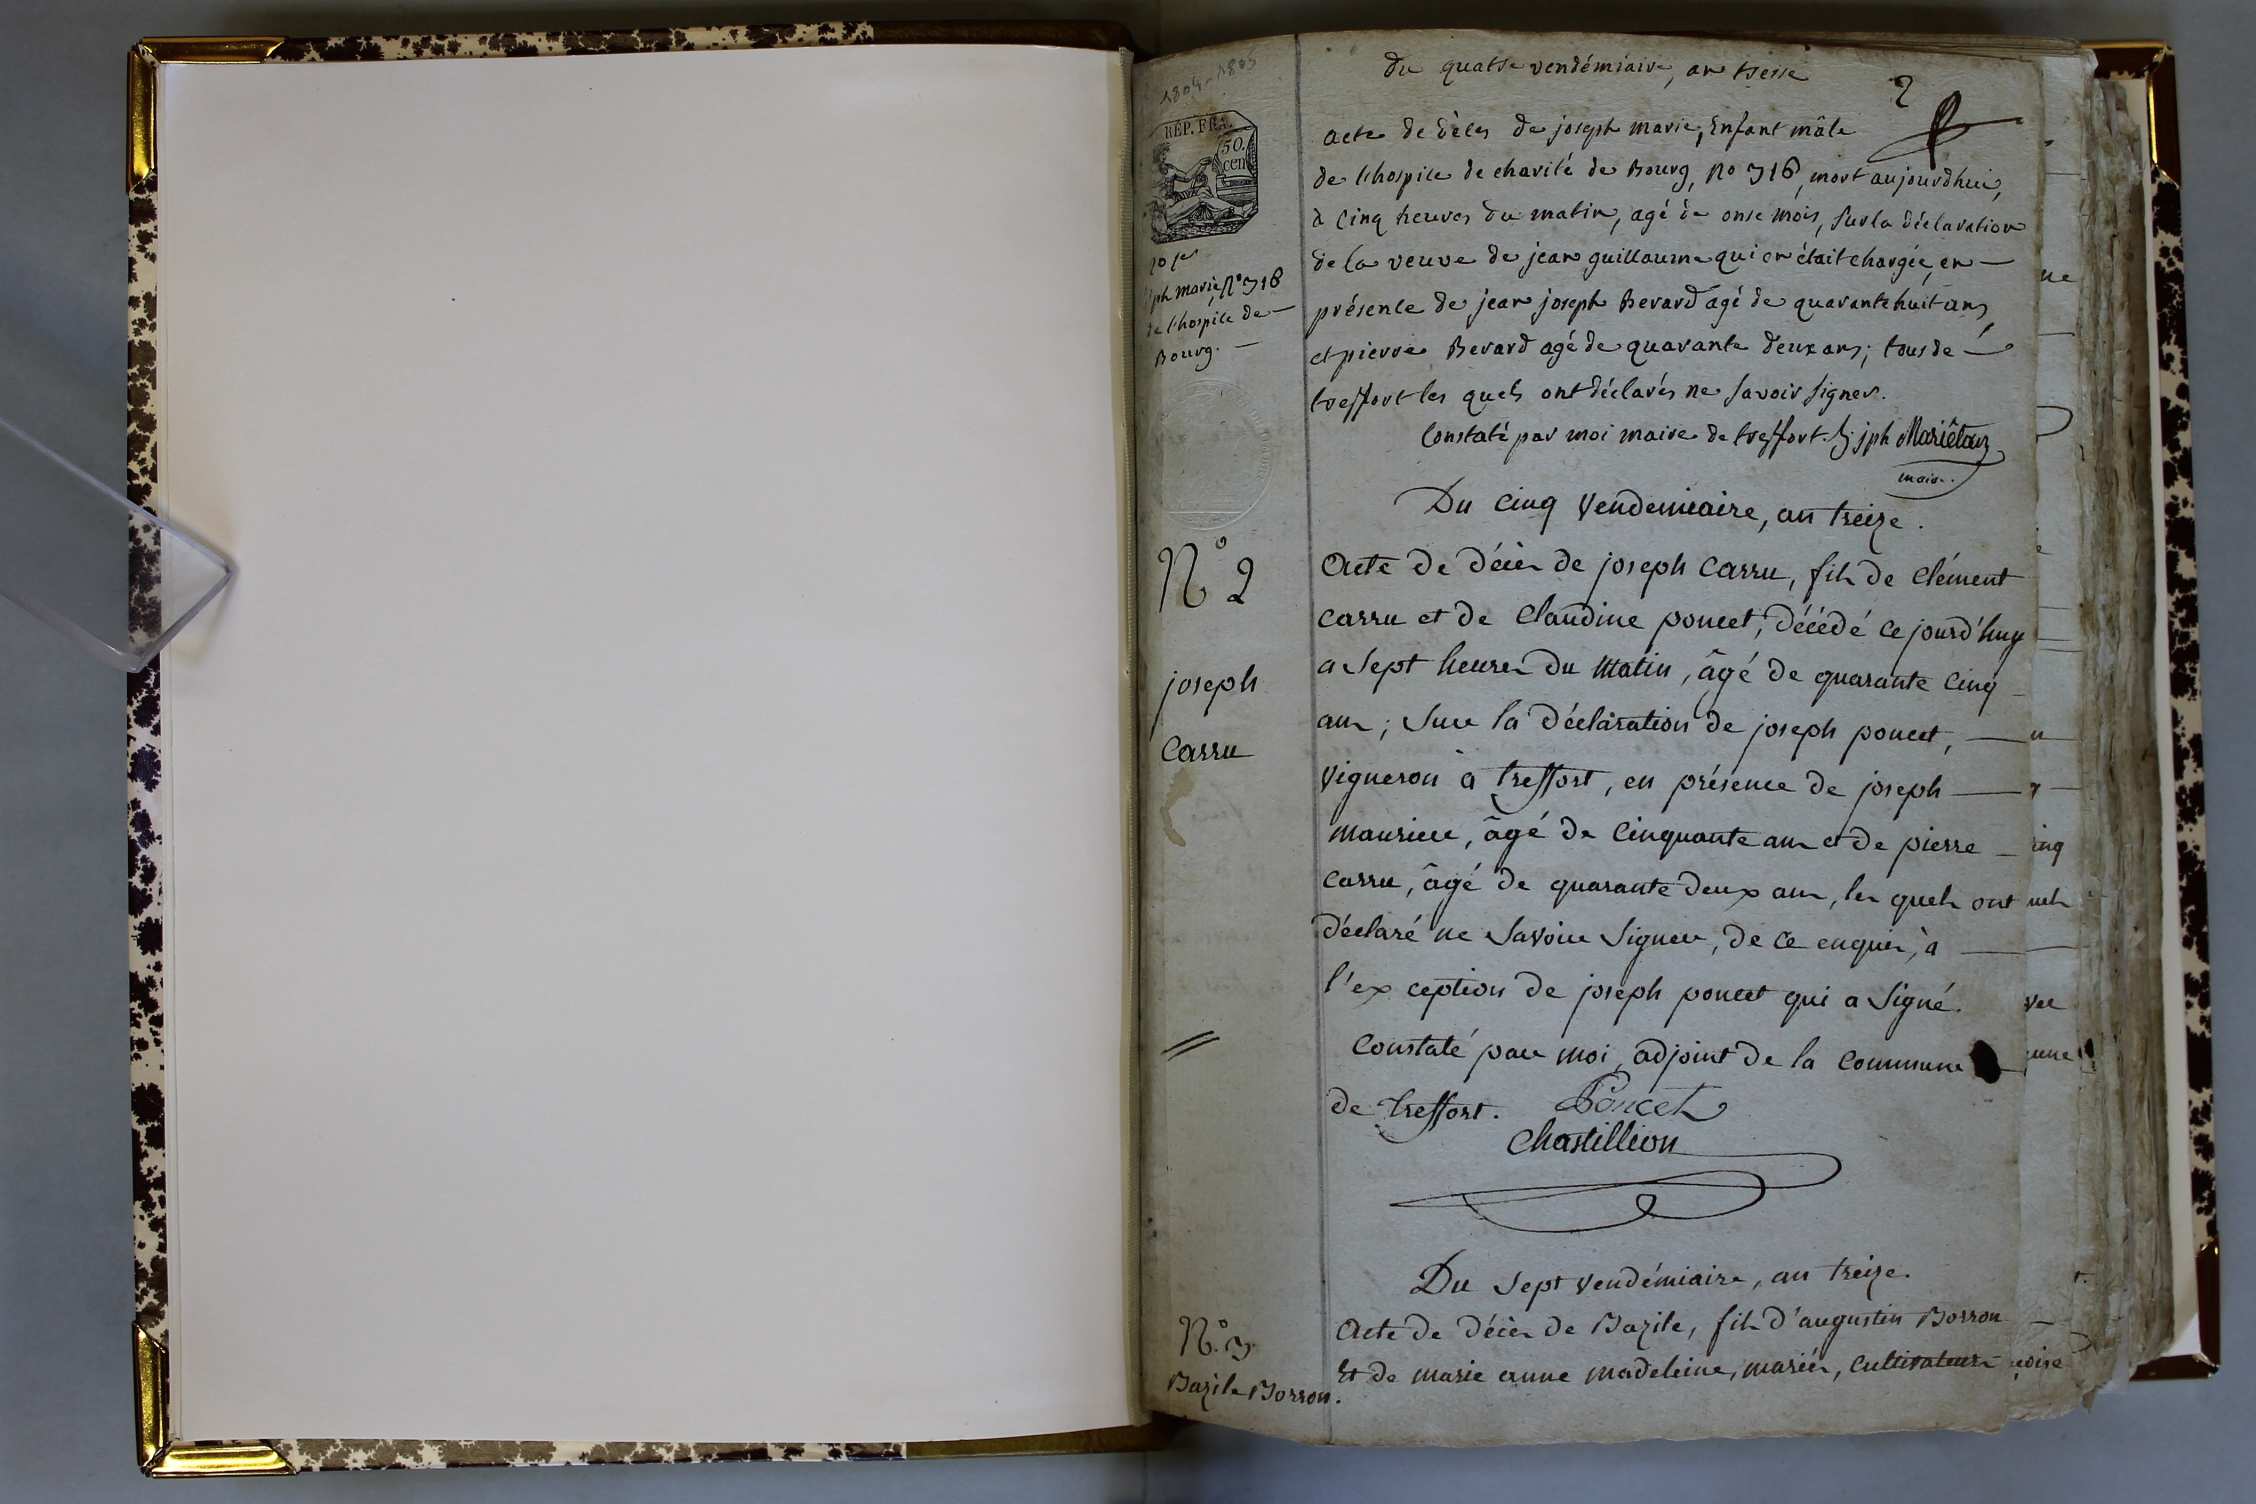 1804-1805
du quatre vendémiaire, an treise
2
RÉP. FRA.
50.
cen
acte de décès de joseph marie, Enfant mâle
de l'hospice de charité de Bourg, No 316, mort aujourdhui,
à cinq heures du matin, agé de onse mois, sur la déclaration
de la veuve de jean guillaume qui en était chargée, en
présence de jean joseph Berard agé de quarante huit ans,
et pierre Berard agé de quarante deux ans; tous de
treffort les quels ont déclarés ne savoir signer.
Constaté par moi maire de treffort. jph Mariétan
maire.
jph marie, No 316
de l'hospice de
Bourg.
Du cinq Vendemiaire, an treize.
No 2
joseph
Carru
Acte de décès de joseph Carru, fils de Clément
Carru et de Claudine poncet, décédé ce jourd'huy
a sept heures du matin, âgé de quarante cinq
ans; sur la déclaration de joseph poncet,
vigneron à treffort, en présence de joseph
maurice, âgé de cinquante ans et de pierre
Carru, âgé de quarante deux ans, les quels ont
déclaré ne savoir signer, de ce enquis, à
l'ex ception de joseph poncet qui a signé.
Constaté par moi, adjoint de la commune
de treffort. Poncet
Chastillion
Du sept vendémiaire, an treize.
No. 3.
Bazile Borron.
Acte de décès de Bazile, fils d'augustin Borron
Et de marie anne madeleine, mariés, cultivateurs